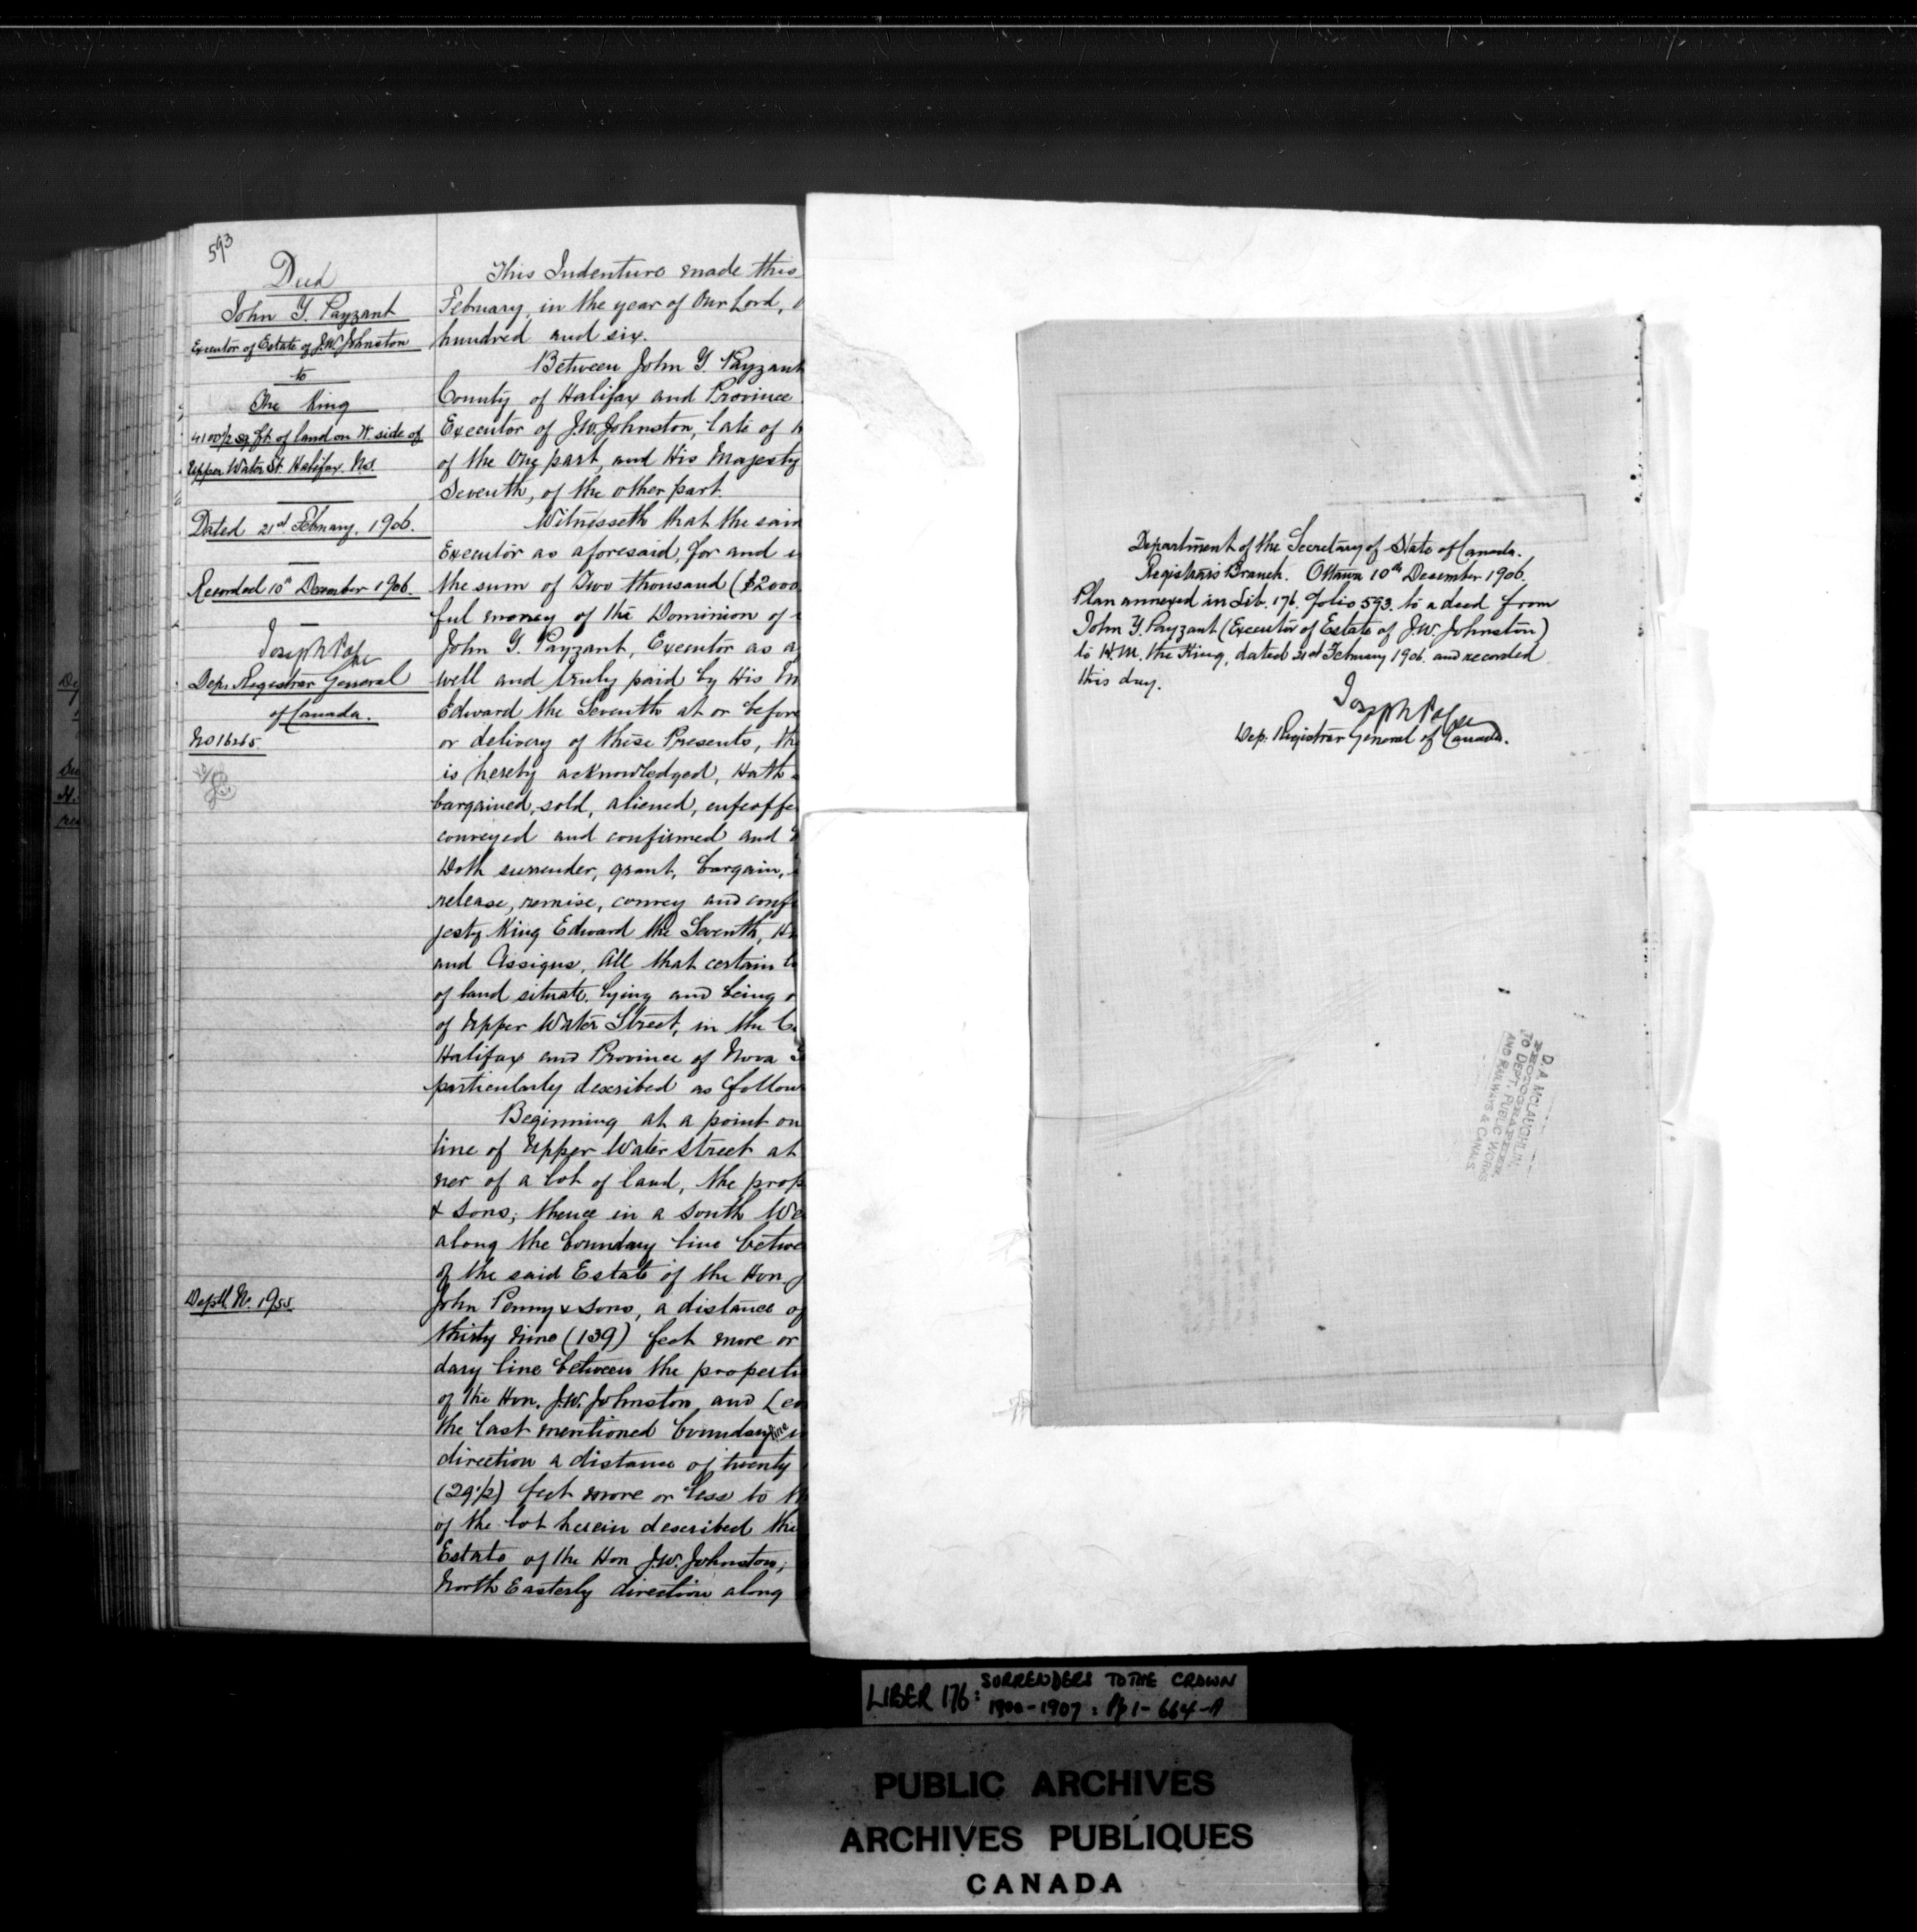 593
Deed
John Y. Payzant
Executor of Estate of J.W. Johnston
to
The King
4100½ sq ft of land on W. side of
Upper Water St. Halifax N.S.
Dated 21st February, 1906.
Recorded 10th December 1906.
Joseph Pope
Dep. Registrar General
of Canada.
No 16265
Deptl. No. 1955
This Indenture made this
February, in the year of Our Lord,
hundred and six.
Between John Y. Payzant
County of Halifax and Province
Executor of J.W. Johnston, late of
of the One part, and His Majesty
Seventh, of the other part.
Witnesseth that the said
Executor as aforesaid, for and
the sum of Two thousand ($2000
ful money of the Dominion of
John Y. Payzant, Executor as a
well and truly paid by His M
Edward the Seventh at or before
or delivery of these Presents, the
is hereby acknowledged, Hath
bargained, sold, aliened, enfeoffe
conveyed and confirmed and
Doth surrender, grant, bargain,
release, remise, convey and conf
jesty King Edward the Seventh, H
and Assigns, All that certain
of land situate, lying and being
of Upper Water Street, in the C
Halifax and Province of Nova S
particularly described as follow
Beginning at a point on
line of Upper Water Street at
ner of a lot of land, the prop
& Sons; thence in a South We
along the boundary line betwe
of the said Estate of the Hon J
John Penny & Sons, a distance of
thirty nine (139) feet more or
dary line between the properti
of the Hon. J.W. Johnston and Leo
the last mentioned boundary line
direction a distance of twenty
(29½) feet more or less to th
of the lot herein described the
Estate of the Hon J.W. Johnston;
North Easterly direction along
Department of the Secretary of State of Canada.
Registrar's Branch. Ottawa 10th December 1906.
Plan annexed in Lib. 176. folio 593. to a deed from
John Y. Payzant (Executor of Estate of J.W. Johnston)
to H.M. the King, dated 21st February 1906. and recorded
this day.
Joseph Pope
Dep. Registrar General of Canada.
D. A. McLAUGHLIN,
PHOTOGRAPHER
TO DEPT. PUBLIC WORKS
AND RAILWAYS & CANALS
LIBER 176: SURRENDERS TO THE CROWN
1900-1907: Pp 1-664-A
PUBLIC ARCHIVES
ARCHIVES PUBLIQUES
CANADA